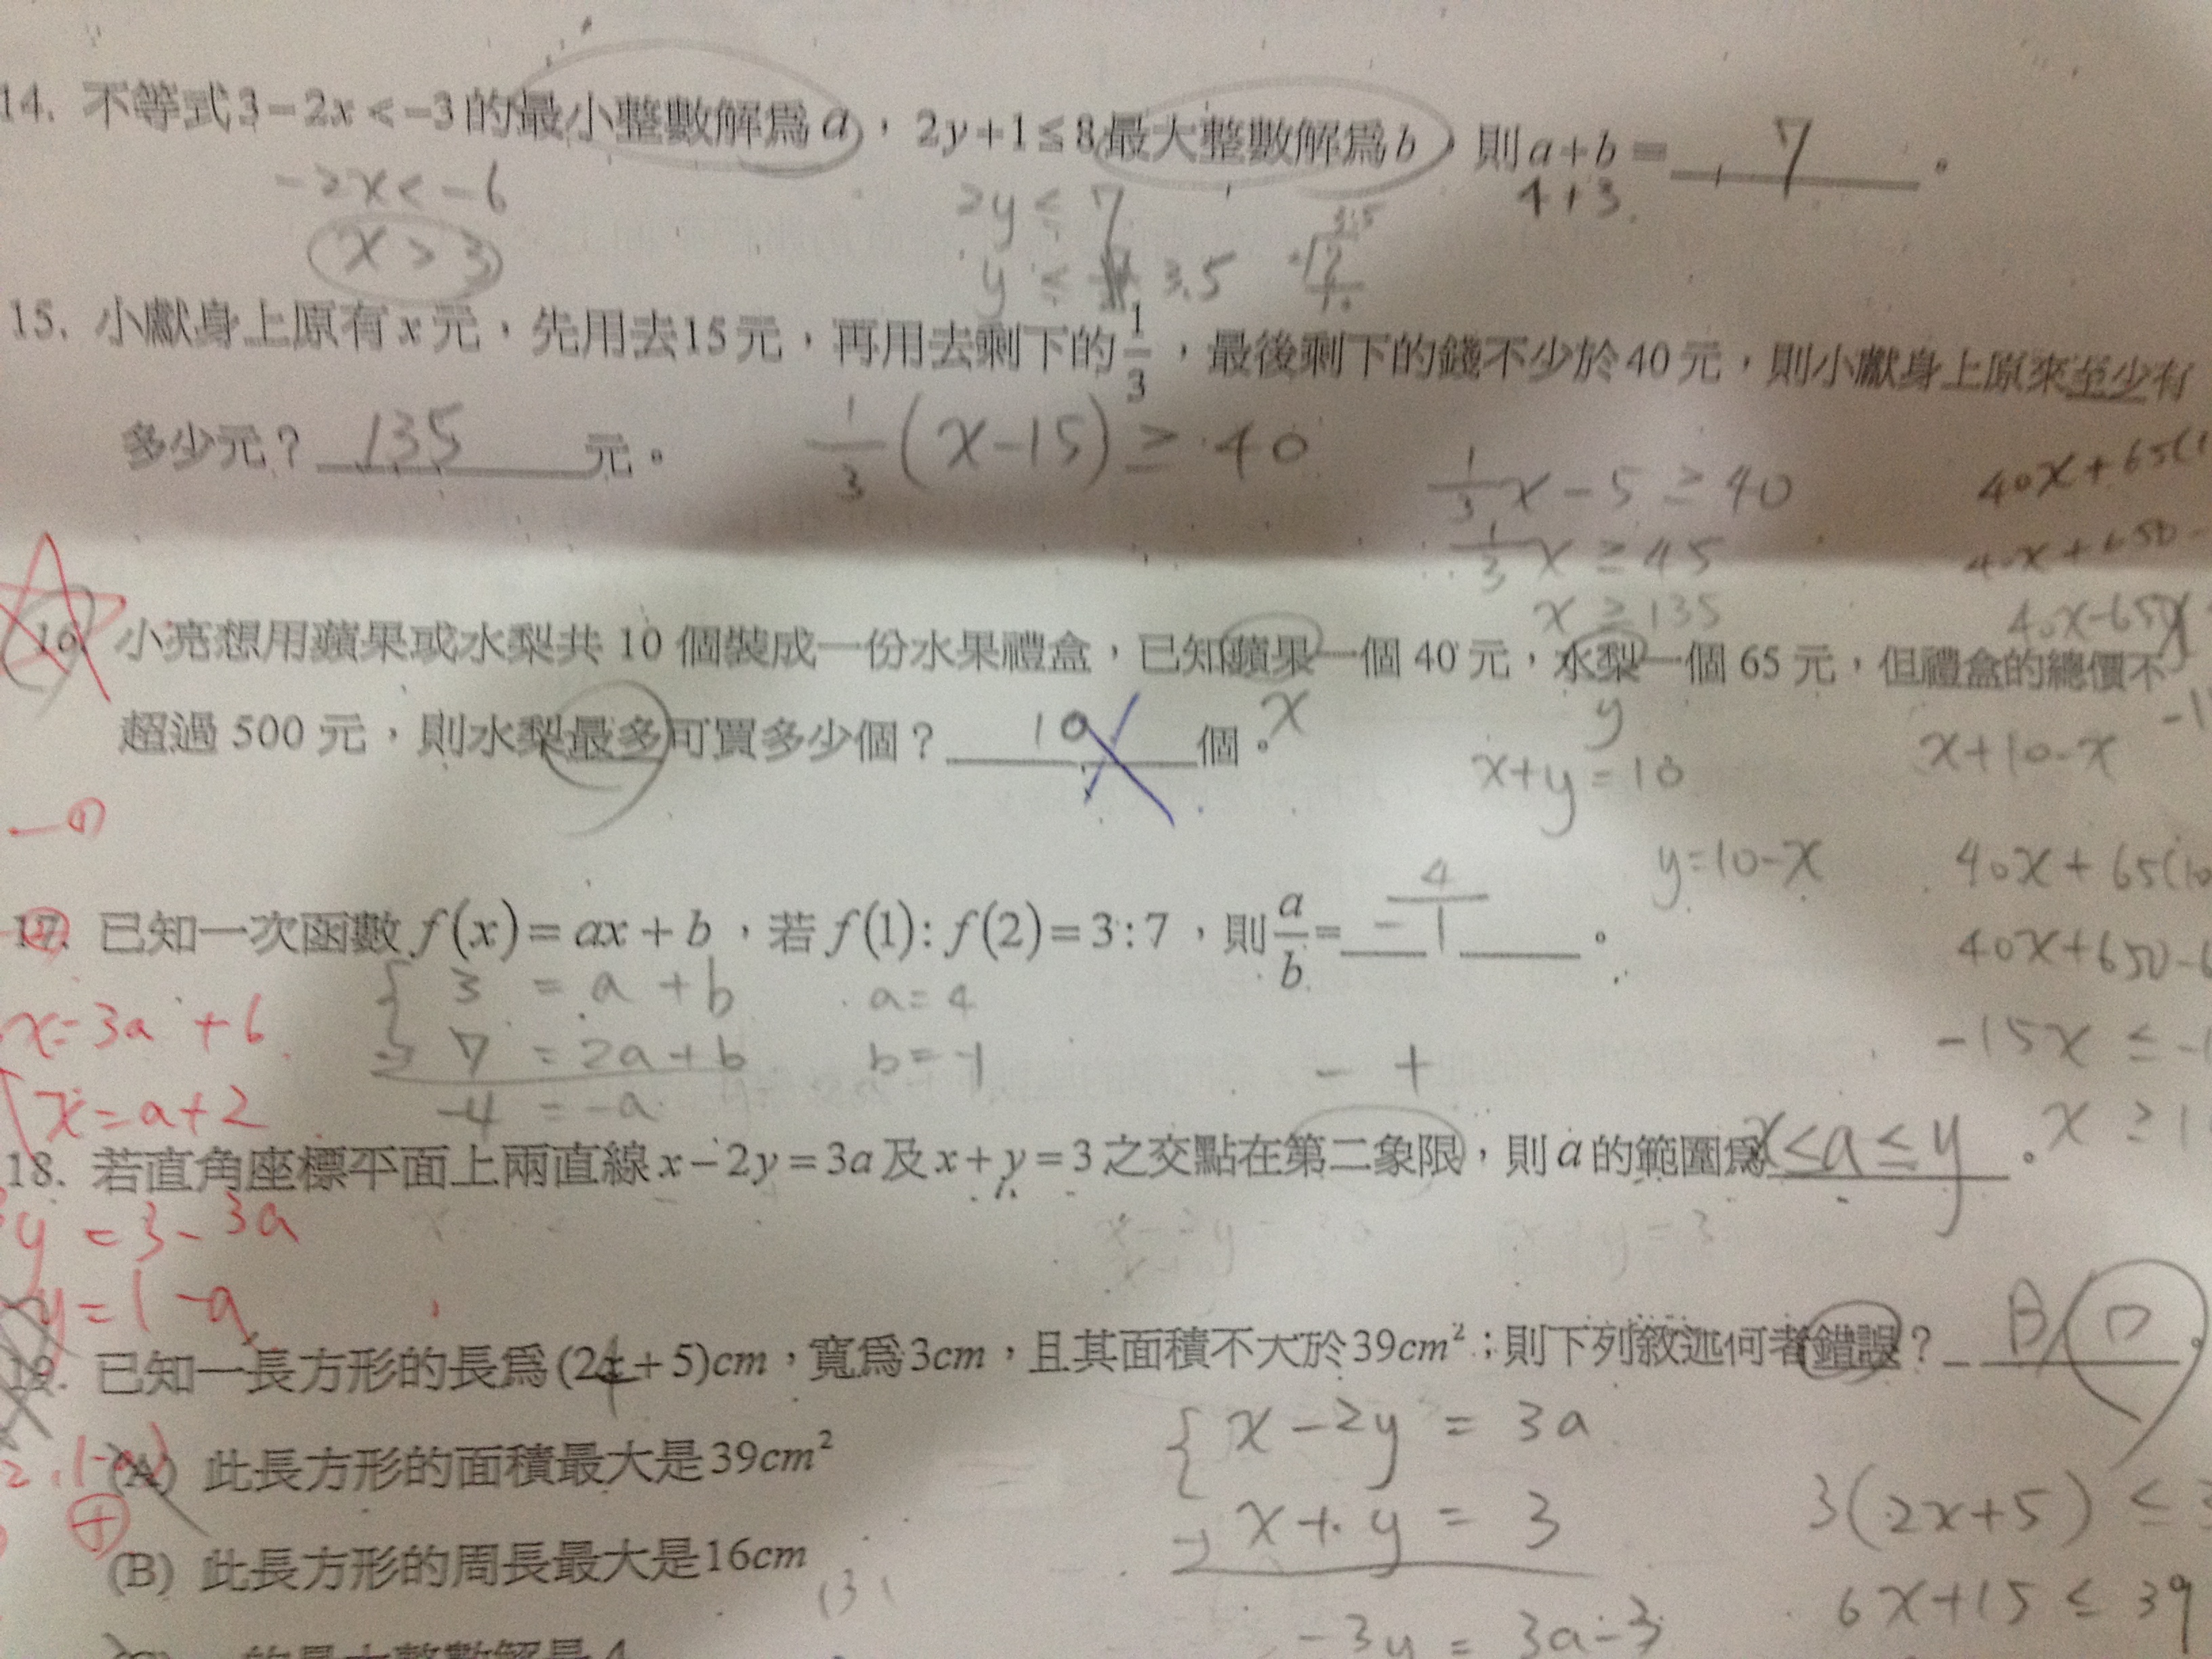 14. 不等式3-2x<-3的最小整數解為a，2y+1≤8最大整數解為b，則a+b= 7 。
-2x<-6
2y≤7
4+3
x>3
y≤ 3.5
15. 小獻身上原有x元，先用去15元，再用去剩下的1/3，最後剩下的錢不少於40元，則小獻身上原來至少有
多少元？ 135 元。
1/3(x-15)≥40
1/3x-5≥40
1/3x≥45
x≥135
40x+65(1
40x+650-
40x-65
16. 小亮想用蘋果或水梨共 10 個裝成一份水果禮盒，已知蘋果一個 40 元，水梨一個 65 元，但禮盒的總價不
超過 500 元，則水梨最多可買多少個？ 10 個。
x
y
x+y=10
x+10-x
-1
y=10-x
40x+65(10
40x+650-6
-15x≤-1
x≥1
17. 已知一次函數f(x)=ax+b，若f(1):f(2)=3:7，則a/b= -4/1 。
3=a+b
a=4
- 7=2a+b
b=-1
-4=-a
- +
x=3a+6
x=a+2
18. 若直角座標平面上兩直線x-2y=3a及x+y=3之交點在第二象限，則a的範圍為 x≤a≤y 。
y=3-3a
y=1-a
19. 已知一長方形的長為(2x+5)cm，寬為3cm，且其面積不大於39cm²；則下列敘述何者錯誤？ B/D
(A) 此長方形的面積最大是39cm²
(B) 此長方形的周長最大是16cm
x-2y=3a
- x+y=3
-3y=3a-3
3(2x+5)≤
6x+15≤39
的最大整數解是4